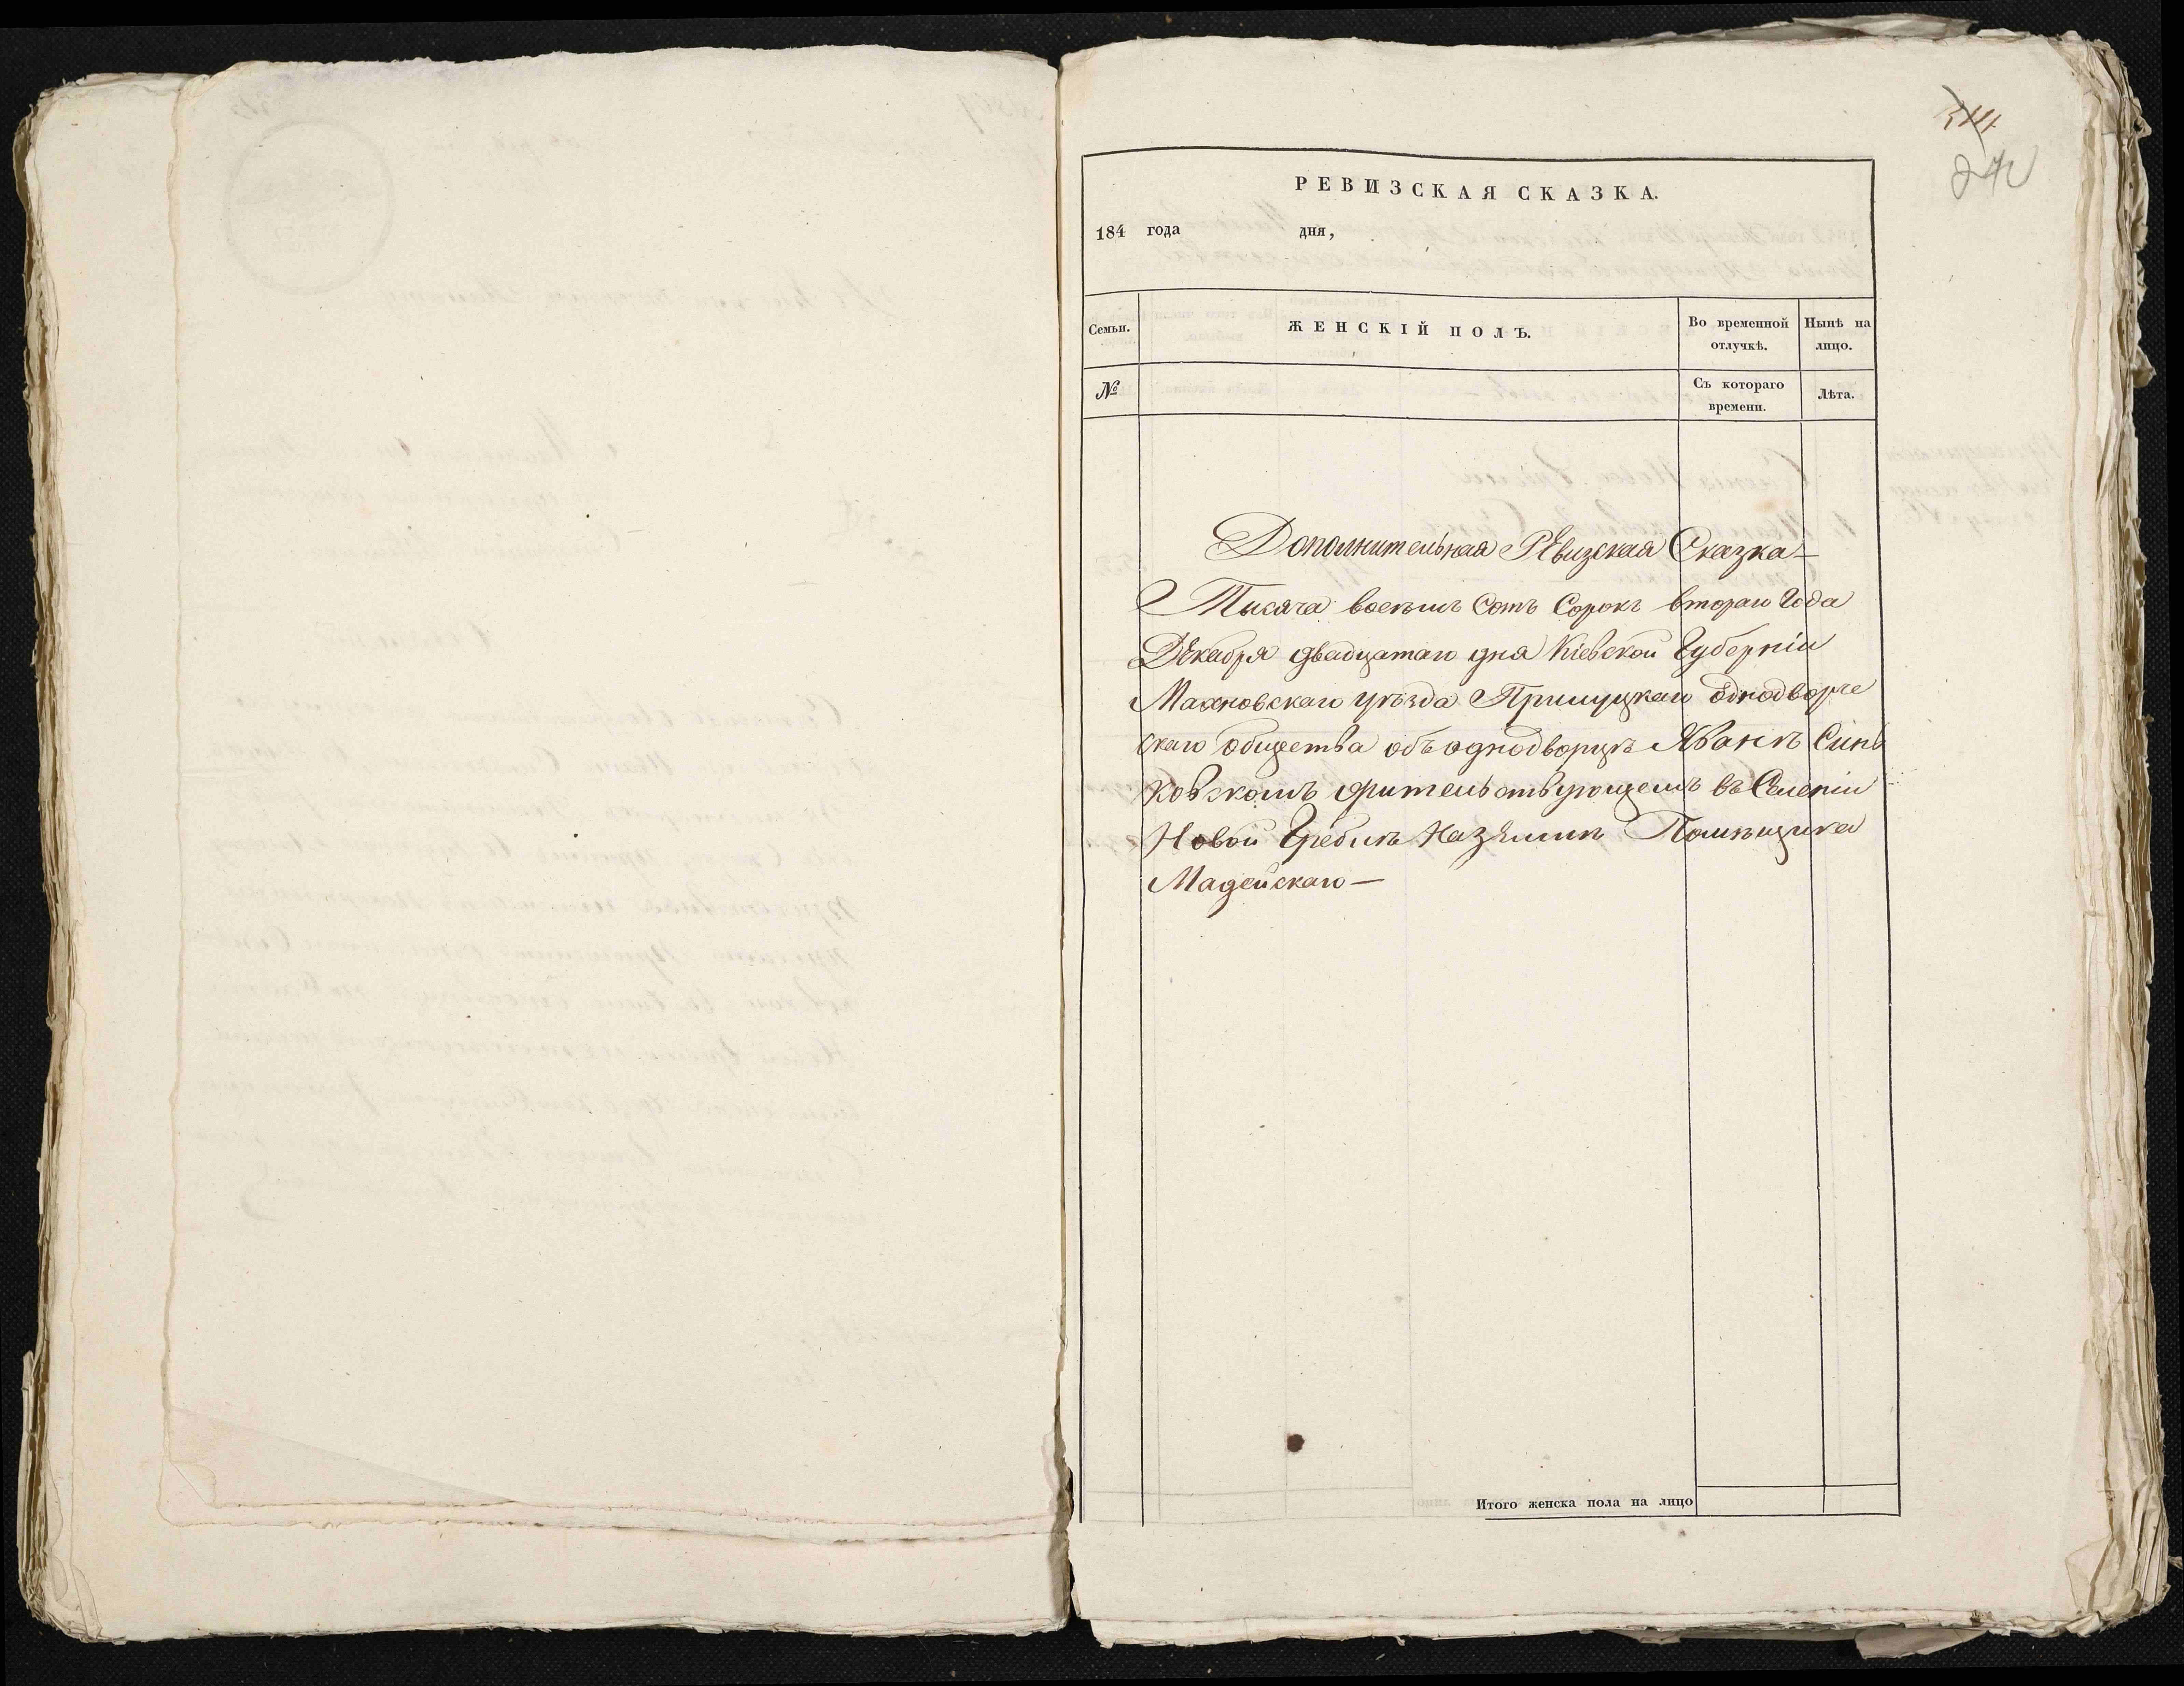 РЕВИЗСКАЯ СКАЗКА.
184 года дня,
Семьи. ЖЕНСКІЙ ПОЛЪ. Во временной отлучкѣ. Нынѣ на лицо.
№ Съ котораго времени. Лѣта.
Дополнительная РЕвизская Сказка —
Тысяча восемь Сотъ Сорокъ втораго Года
ДЕкабря двадцатаго дня Кіевской Губерніи
Махновскаго уѣзда Прилуцкаго однодворче
скаго общества объ однодворцѣ ИВанѣ Синь
ковскомъ жительствующемъ въ Селеніи
Новой Греблѣ На зЕмлѣ Помѣщика
Мадейскаго —
Итого женска пола на лицо